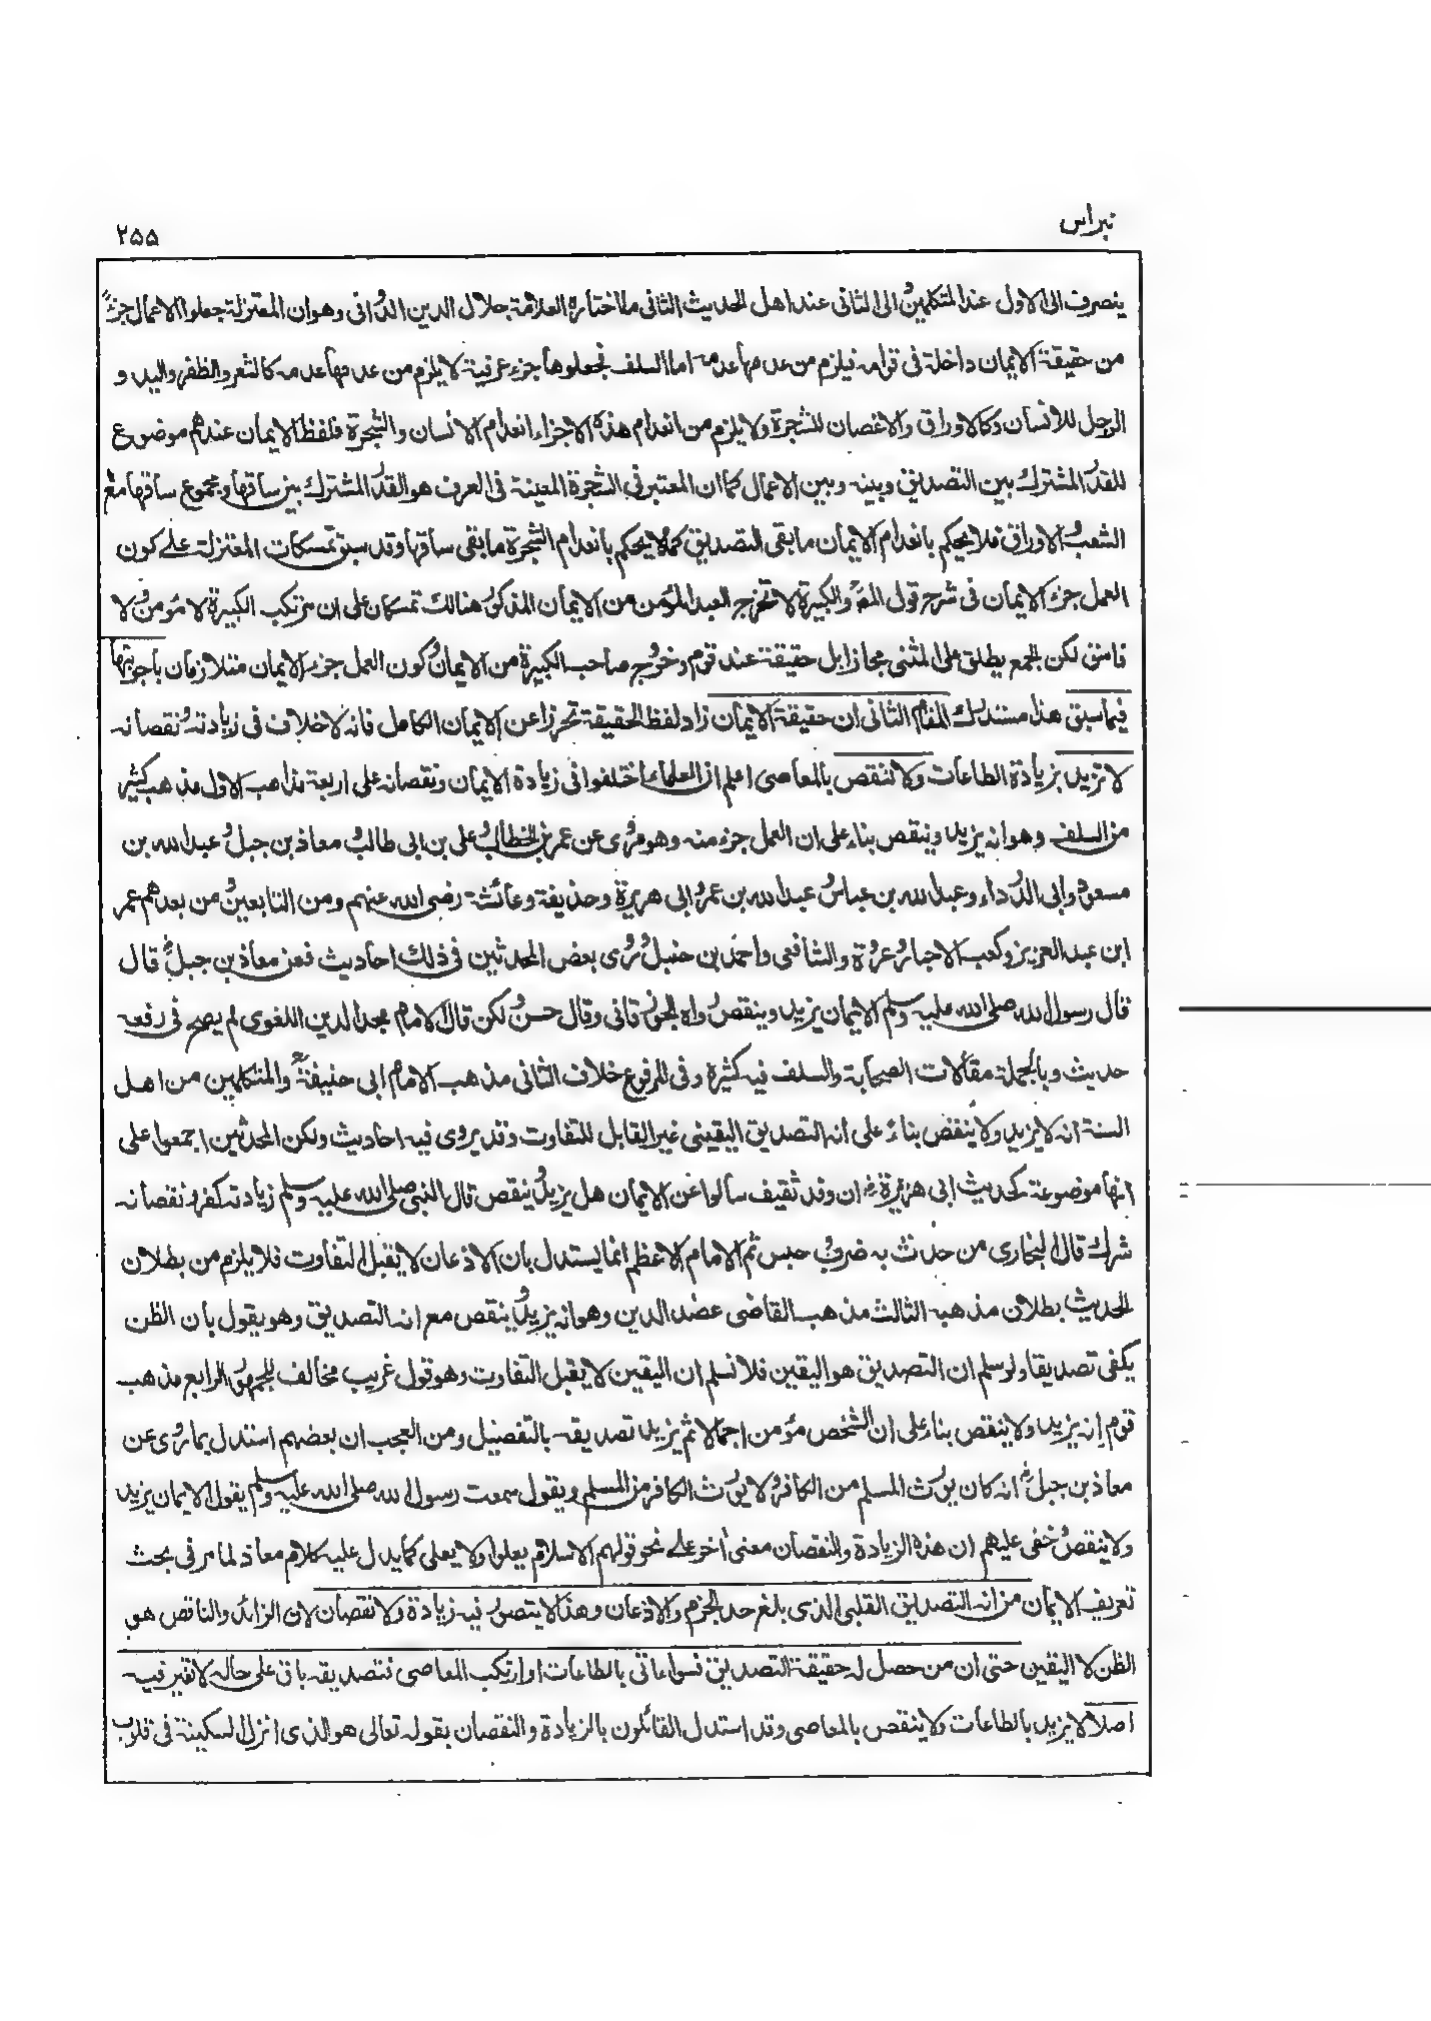 نبراس
٢۵۵
ينصرف الى الاول عند المتكلمين والى الثانى عند اهل الحديث الثانى ما اختاره العلامة جلال الدين الدوانى وهو ان المعتزلة جعلوا الاعمال جزءً
من حقيقة الايمان داخلة فى قوامه فيلزم من عدمها عدمه اما السلف فجعلوها جزء عرفية لا يلزم من عدمها عدمه كالشعر والظفر واليد و
الرجل للانسان وكالاوراق والاغصان للشجرة ولا يلزم من انعدام هذه الاجزاء انعدام الانسان والشجرة فلفظ الايمان عندهم موضوع
للقدر المشترك بين التصديق وبينه وبين الاعمال كما ان المعتبر فى الشجرة المعينة فى العرف هو القدر المشترك بين ساقها ومجموع ساقها مع
الشعب والاوراق فلا يحكم بانعدام الايمان ما بقى التصديق كما لا يحكم بانعدام الشجرة ما بقى ساقها وقد سبق تمسكات المعتزلة على كون
العمل جزء الايمان فى شرح قول المصر والكبيرة لا تخرج العبد المؤمن من الايمان المذكور هنالك تمسكان على ان مرتكب الكبيرة لا مؤمن ولا
فاسق لكن الجمع يطلق على المثنى مجازا بل حقيقة عند قوم وخروج صاحب الكبيرة من الايمان وكون العمل جزء الايمان متلازمان باجوبتها
فيما سبق هذا مستدرك المقام الثانى ان حقيقة الايمان زاد لفظ الحقيقة تحرزا عن الايمان الكامل فانه لا خلاف فى زيادته ونقصانه
لا تزيد بزيادة الطاعات ولا تنقص بالمعاصى اعلم ان العلماء اختلفوا فى زيادة الايمان ونقصانه على اربعة مذاهب الاول مذهب كثير
من السلف وهو انه يزيد وينقص بناء على ان العمل جزء منه وهو مروى عن عمر بن الخطاب وعلى بن ابى طالب ومعاذ بن جبل وعبد الله بن
مسعود وابى الدرداء وعبد الله بن عباس وعبد الله بن عمر وابى هريرة وحذيفة وعائشة رضى الله عنهم ومن التابعين ومن بعدهم عمر
ابن عبد العزيز وكعب الاحبار وعروة والشافعى واحمد بن حنبل وروى بعض المحدثين فى ذلك احاديث فعن معاذ بن جبل رض قال
قال رسول الله صلى الله عليه وسلم الايمان يزيد وينقص رواه الجوزقانى وقال حسن ولكن قال الامام مجد الدين اللغوى لم يصح فى رفعه
حديث وبالجملة مقالات الصحابة والسلف فيه كثيرة وفى المرفوع خلاف الثانى مذهب الامام ابى حنيفة رح والمتكلمين من اهل
السنة انه لا يزيد ولا ينقص بناء على انه التصديق اليقينى غير القابل للتفاوت وقد يروى فيه احاديث ولكن المحدثين اجمعوا على
انها موضوعة كحديث ابى هريرة رض ان وفد ثقيف سألوا عن الايمان هل يزيد وينقص قال النبى صلى الله عليه وسلم زيادته كفر ونقصانه
شرك قال البخارى من حدث به ضرب وحبس ثم الامام الاعظم انما يستدل بان الاذعان لا يقبل التفاوت فلا يلزم من بطلان
الحديث بطلان مذهبه الثالث مذهب القاضى عضد الدين وهو انه يزيد وينقص مع انه التصديق وهو يقول بان الظن
يكفى تصديقا ولو سلم ان التصديق هو اليقين فلا نسلم ان اليقين لا يقبل التفاوت وهو قول غريب مخالف للجمهور الرابع مذهب
قوم انه يزيد ولا ينقص بناء على ان الشخص مؤمن اجمالا ثم يزيد تصديقه بالتفصيل ومن العجب ان بعضهم استدل بما روى عن
معاذ بن جبل رض انه كان يورث المسلم من الكافر ولا يورث الكافر من المسلم ويقول سمعت رسول الله صلى الله عليه وسلم يقول الايمان يزيد
ولا ينقص وخفى عليهم ان هذه الزيادة والنقصان معنى اٰخر على نحو قولهم الاسلام يعلوا ولا يعلى كما يدل عليه كلام معاذ لما مر فى بحث
تعريف الايمان من انه التصديق القلبى الذى بلغ حد الجزم والاذعان وهذا لا يتصور فيه زيادة ولا نقصان لان الزائد والناقص هو
الظن لا اليقين حتى ان من حصل له حقيقة التصديق فسواء اتى بالطاعات او ارتكب المعاصى فتصديقه باق على حاله لا تغير فيه
اصلا لا يزيد بالطاعات ولا ينقص بالمعاصى وقد استدل القائلون بالزيادة والنقصان بقوله تعالى هو الذى انزل السكينة فى قلوب